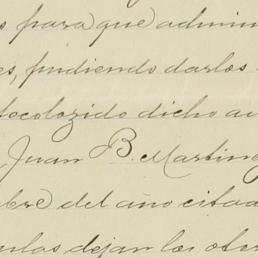 s para que admin
es, pudiendo darlos
tocolozido dicho au
Juan B. Marting
bre del año citad
ulas dejan las oter